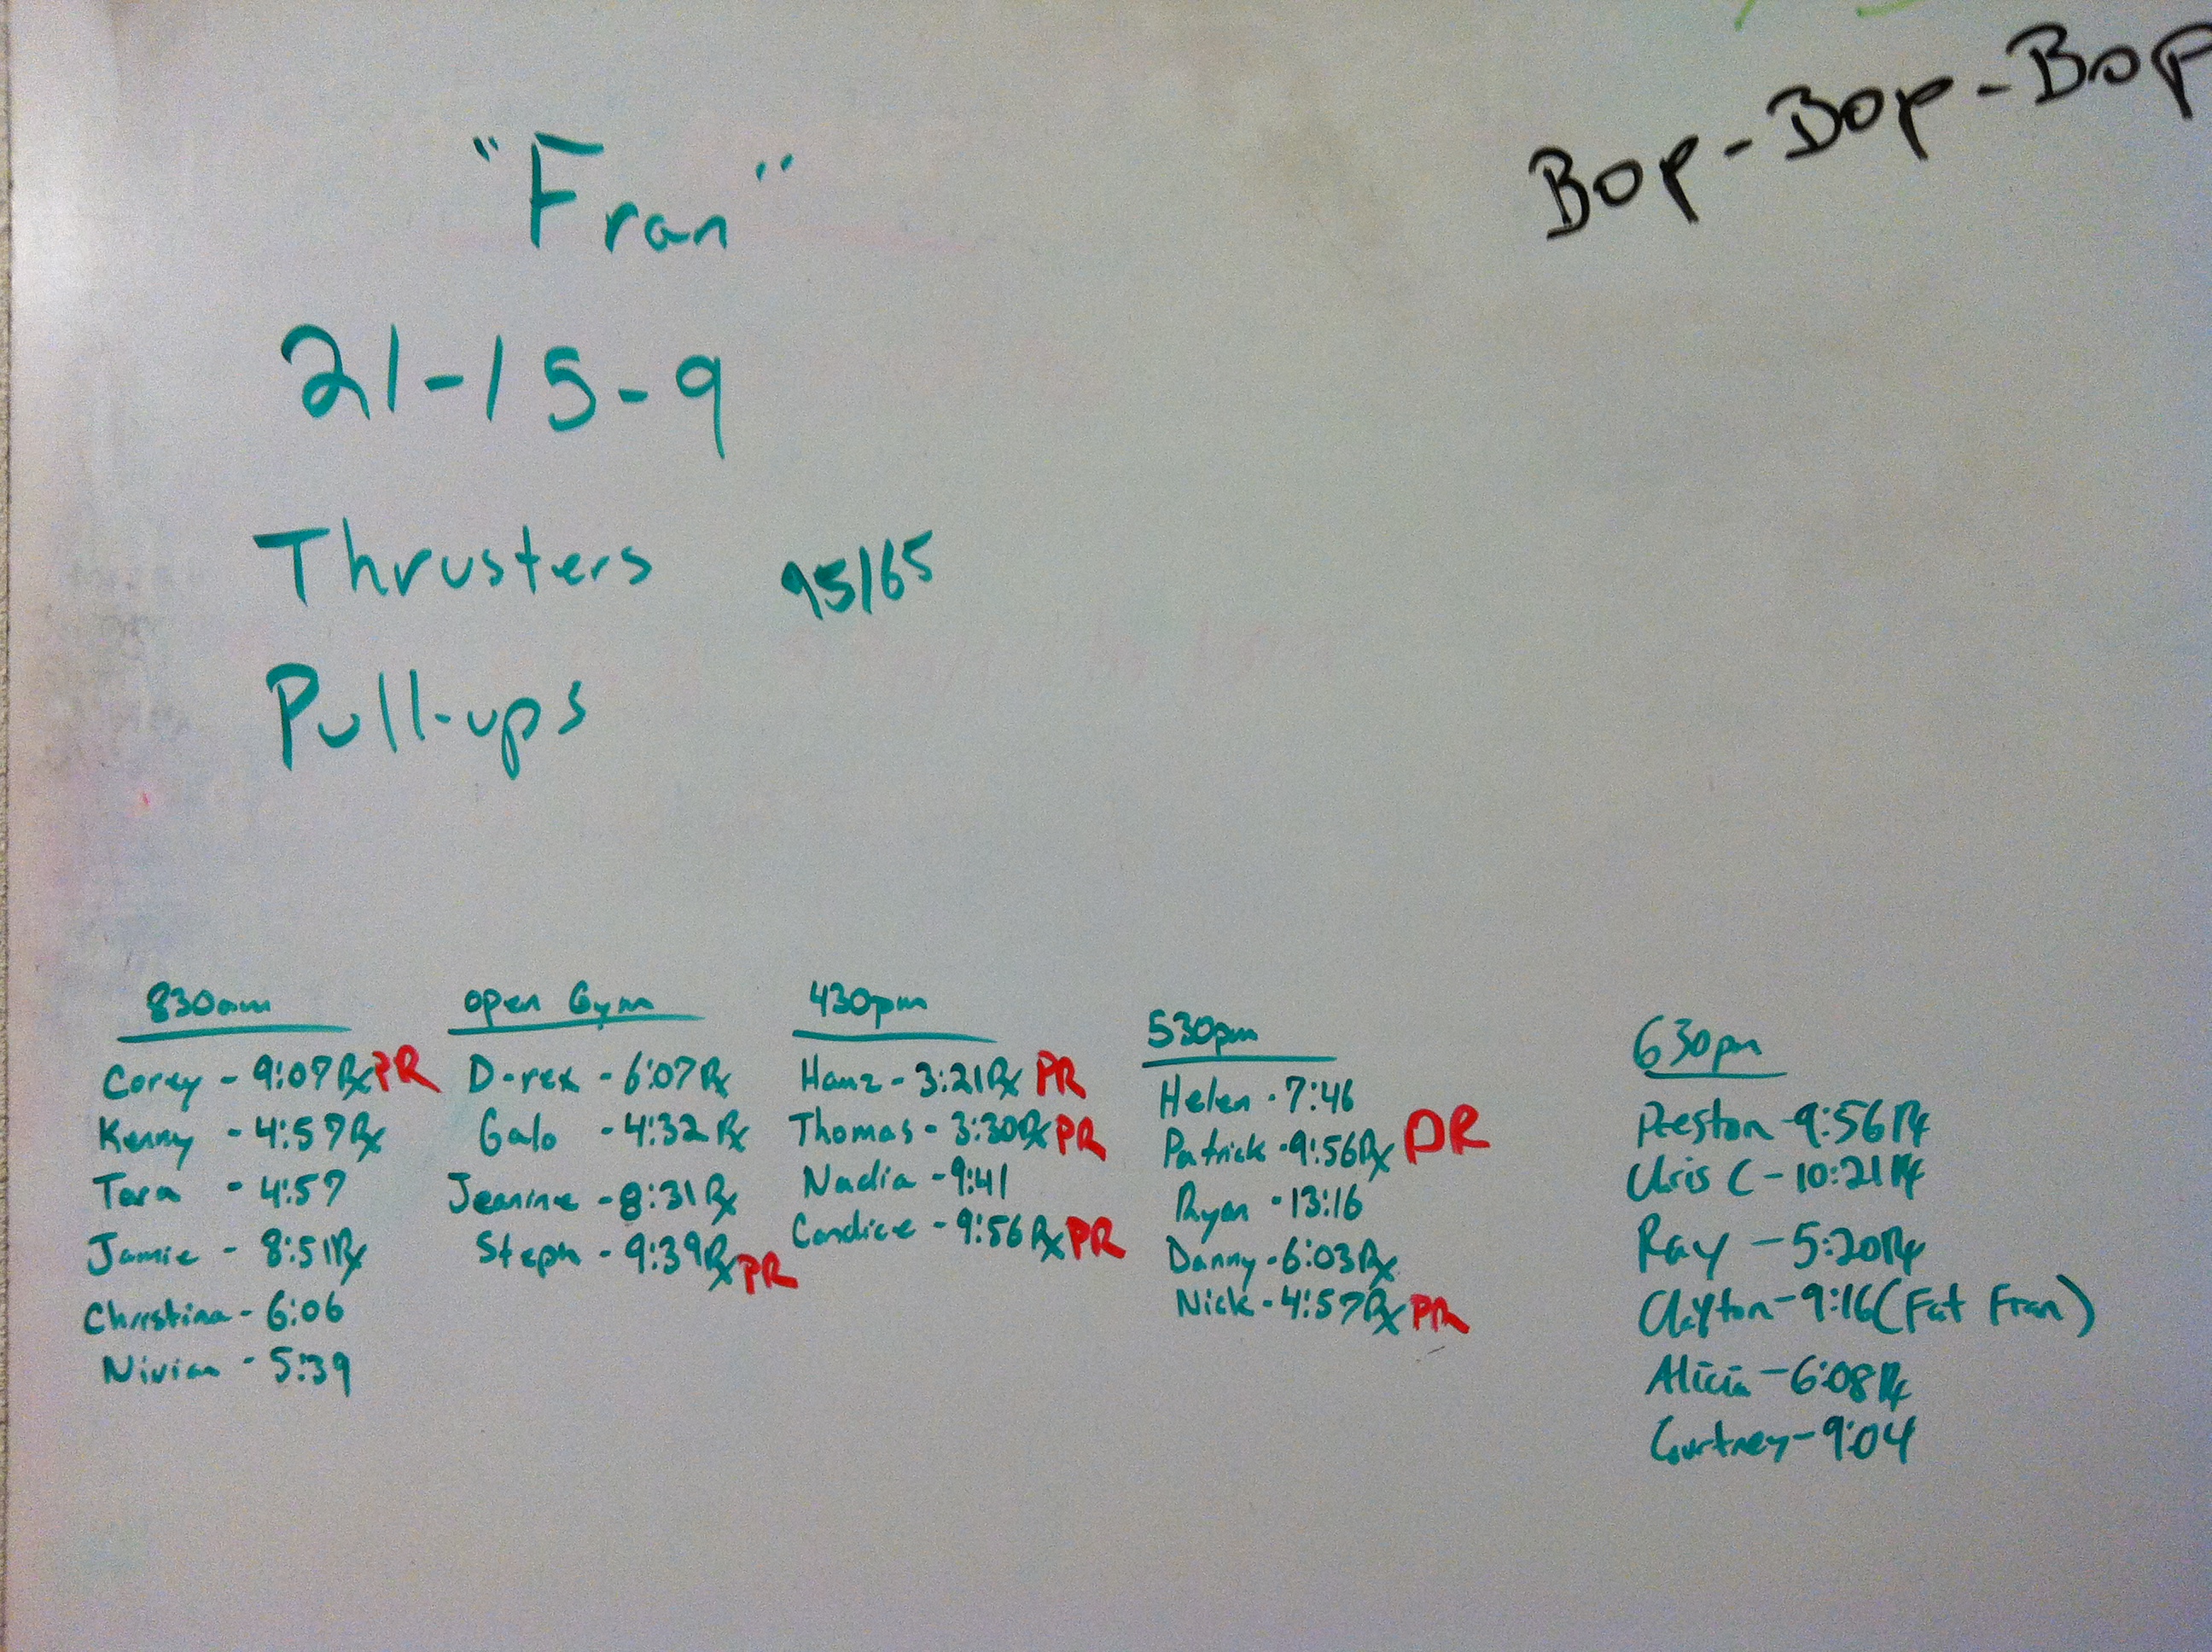 Bop-Bop-Bop
"Fran"
21-15-9
Thrusters 95/65
Pull-ups
830am
Corey - 9:07 Rx PR
Kenny - 4:57 Rx
Tara - 4:57
Jamie - 8:51 Rx
Christina - 6:06
Nivian - 5:39
open Gym
D-rex - 6:07 Rx
Galo - 4:32 Rx
Jeanine - 8:31 Rx
Steph - 9:39 Rx PR
430pm
Hanz - 3:21 Rx PR
Thomas - 3:30 Rx PR
Nadia - 9:41
Candice - 9:56 Rx PR
530pm
Helen - 7:46
Patrick - 9:56 Rx PR
Ryan - 13:16
Danny - 6:03 Rx
Nick - 4:57 Rx PR
630pm
Preston - 9:56 Rx
Chris C - 10:21 Rx
Ray - 5:20 Rx
Clayton - 9:16 (Fat Fran)
Alicia - 6:08 Rx
Courtney - 9:04